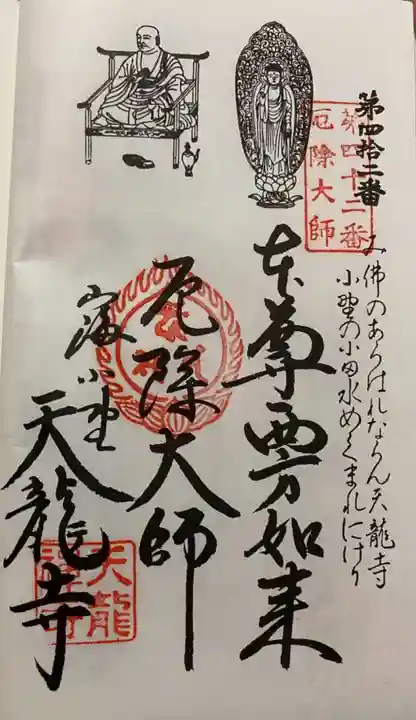 第四拾二番
第四十二番
厄除大師
み佛のあらはれならん天龍寺
小野の小田水めくまれにけり
本尊西方如来
厄除大師
小野
天龍寺
天龍